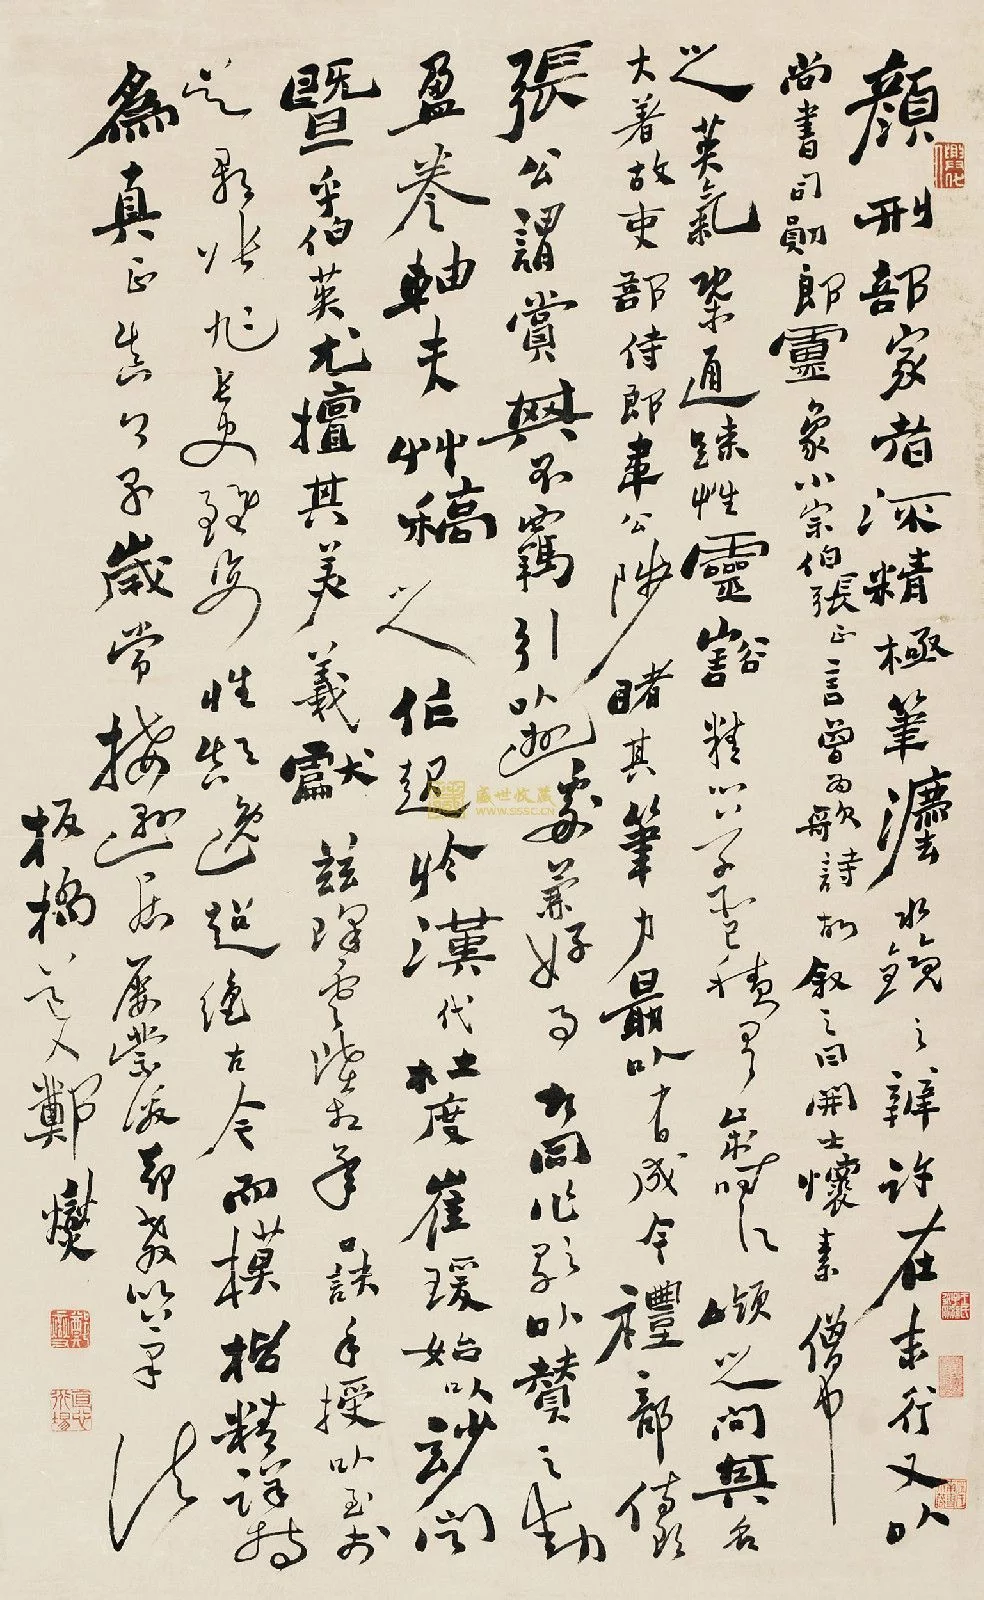 顏刑部家者流精極筆灋水鏡之辨許在末行又以
尚書司勳郎靈象小宗伯張正言曾為歌詩故敘之曰開士懷素僧中
之英氣槩通疎性靈豁精心草聖積有歲時江嶺之間其名
大著故吏部侍郎韋公陟睹其筆力勗以有成今禮部侍郎
張公謂賞其不羈引以遊處兼好事者同作歌以贊之動
盈卷軸夫艸稿之作起於漢代杜度崔瑗始以妙聞
暨乎伯英尤擅其美羲獻茲降虞陸相承口訣手授以至於
長史雖姿性顛逸超絕古今而模楷精詳特
為真正真卿早歲常接遊居屢蒙激昂教以筆法
板橋道人鄭燮
盛世收藏
WWW.SSSC.CN